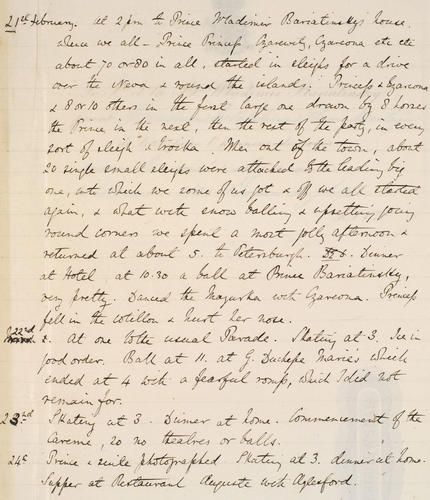 21st February. at 2 pm to Prince Wladimir Bariatinsky's house.
whence we all - Prince Princess, Czarewitz, Czarevna etc etc
about 70 or 80 in all, started in sleighs for a drive
over the Neva & round the islands. Princess & Czarevna
& 8 or 10 others in the first large one drawn by 8 horses
the Prince in the next, then the rest of the party, in every
sort of sleigh & troika. When out of the town, about
20 single small sleighs were attached to the leading big
one, into which we some of us got & off we all started
again, & what with snow balling & upsetting, going
round corners we spent a most jolly afternoon &
returned at about 5. to Petersburgh. Dinner
at Hotel at 10.30 a ball at Prince Bariatinsky,
very pretty. Danced the Mazurka with Czarevna. Princess
fell in the Cotillon & hurt her nose.
22nd At one to the usual Parade. Skating at 3. Ice in
good order. Ball at 11. at G. Duchess Marie's which
ended at 4 with a fearful romp, which I did not
remain for.
23rd Skating at 3. Dinner at home. Commencement of the
Careme, so no theatres or balls.
24th Prince & suite photographed. Skating at 3. dinner at home.
Supper at Restaurant Auguste with